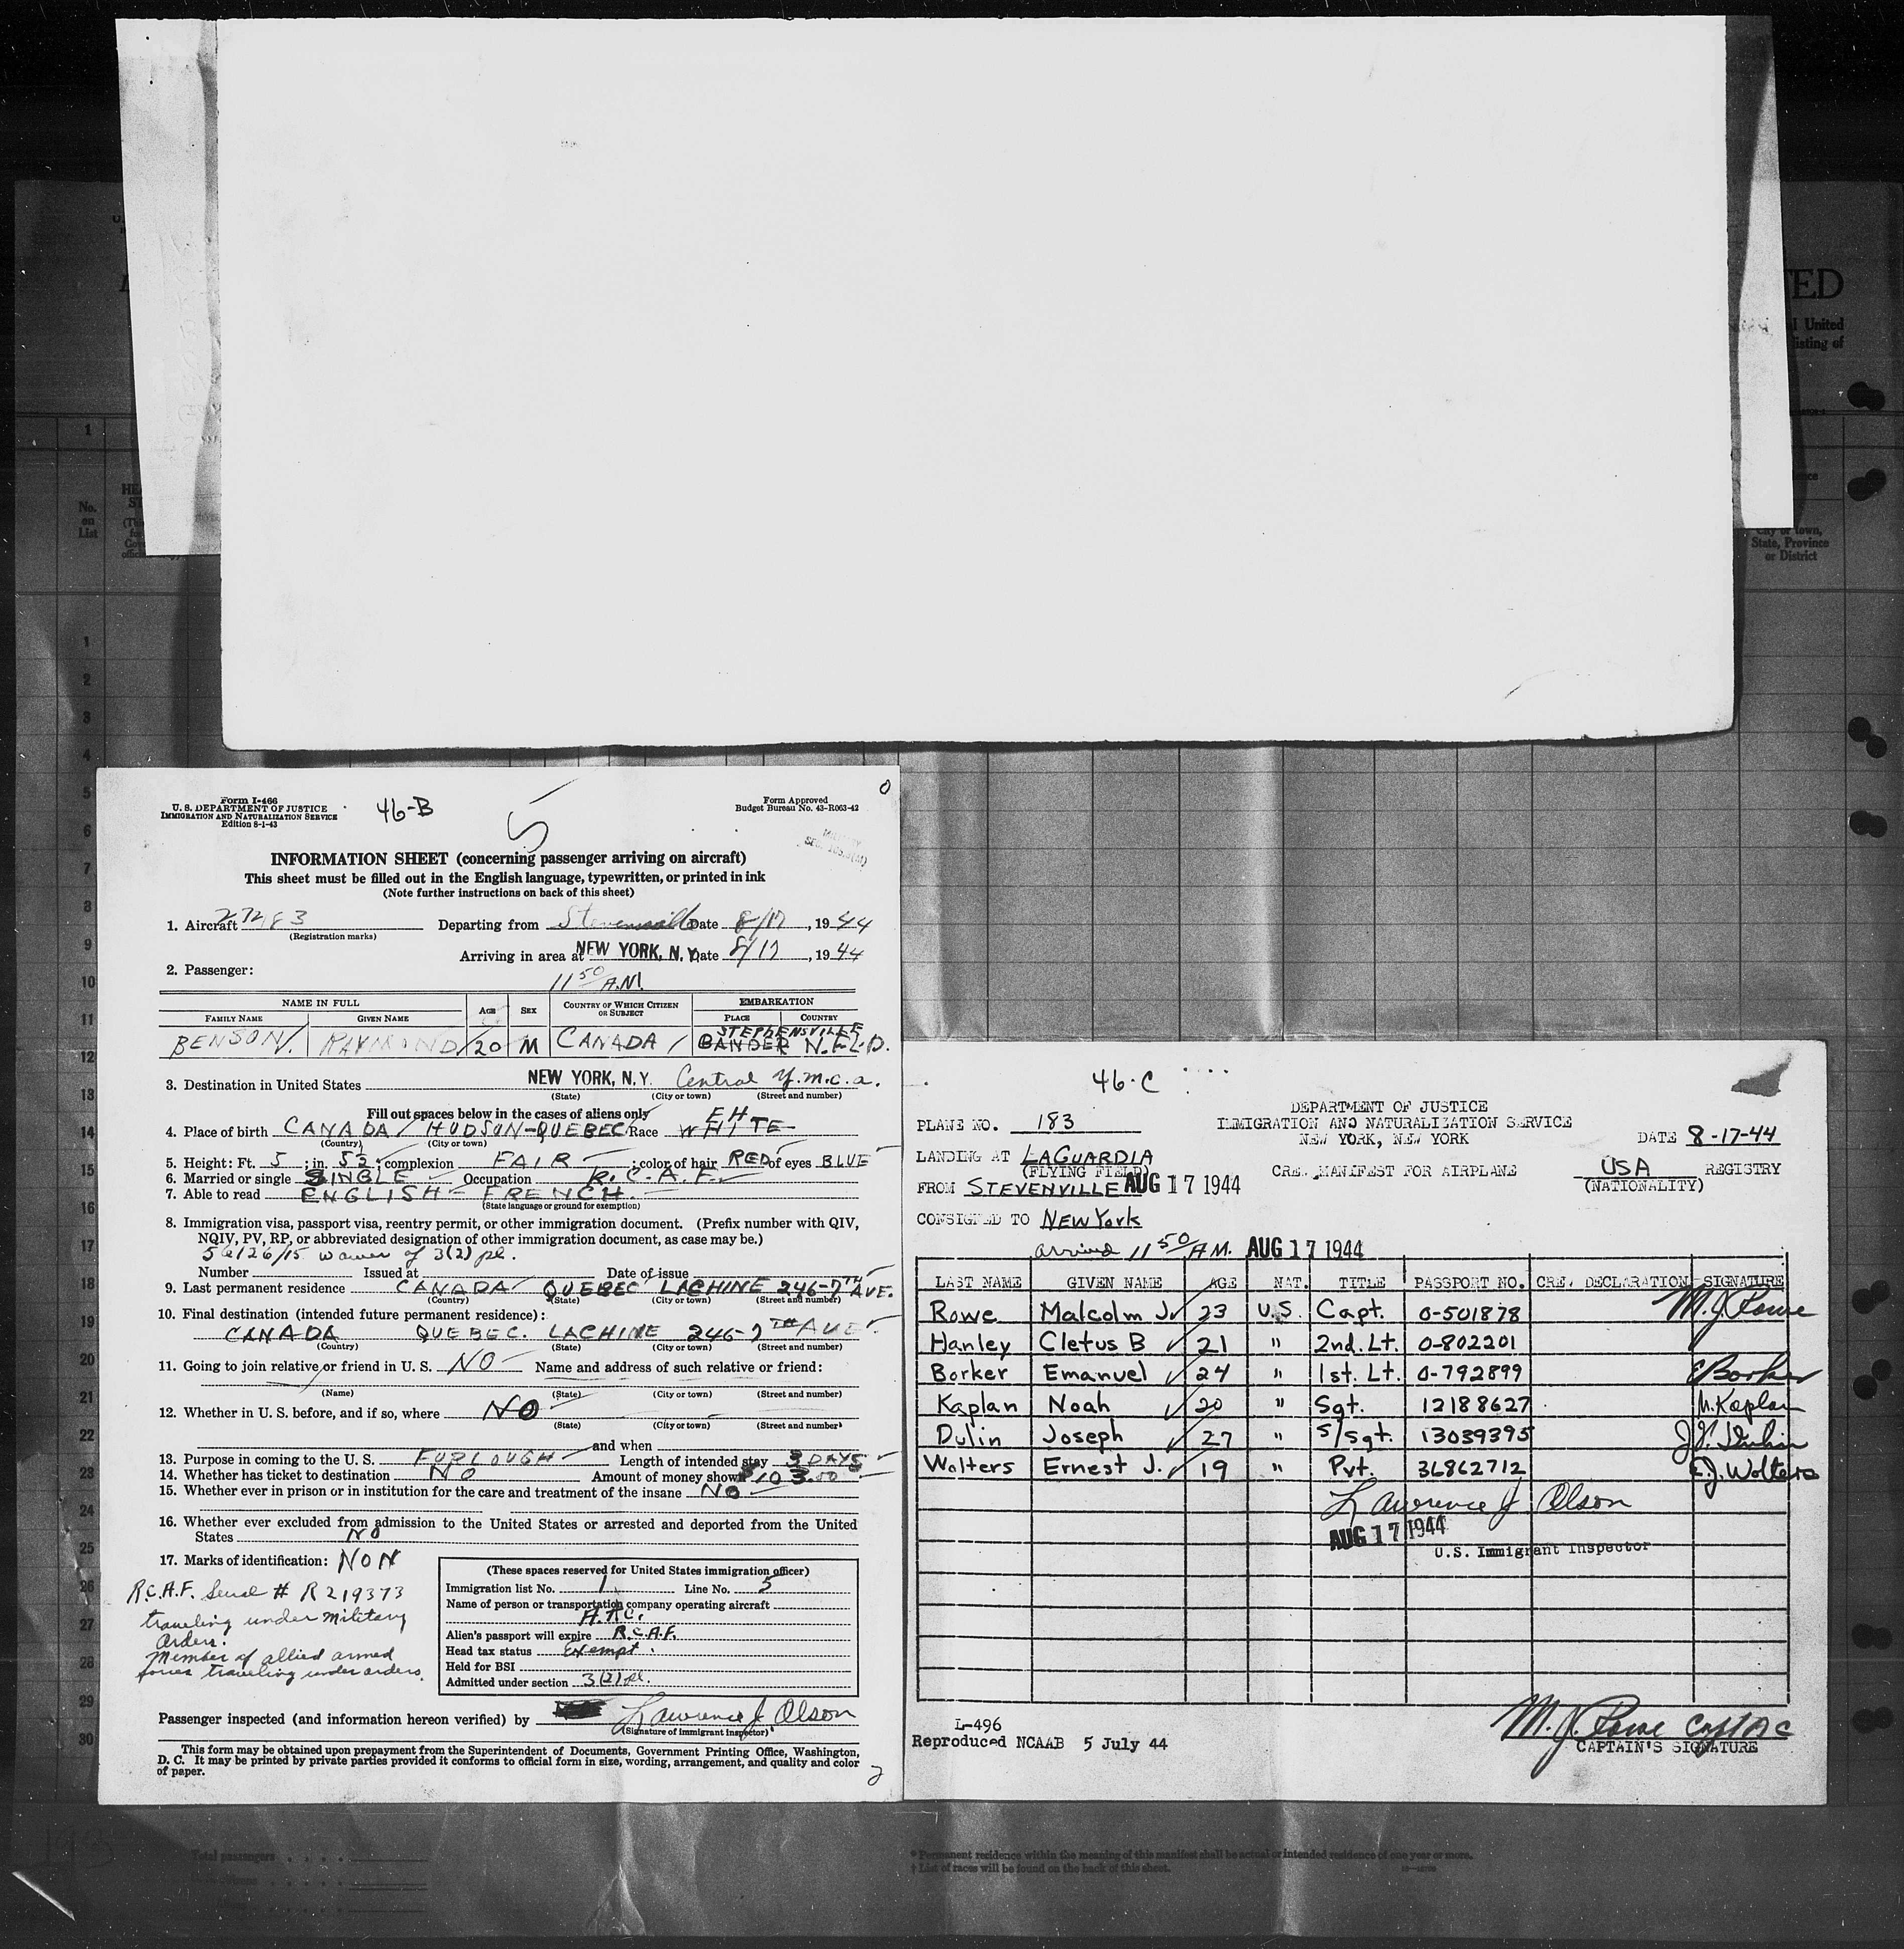 46-B
5
0
Form I-466
U. S. DEPARTMENT OF JUSTICE
IMMIGRATION AND NATURALIZATION SERVICE
Edition 8-1-43
Form Approved
Budget Bureau No. 43-R063-42
INFORMATION SHEET (concerning passenger arriving on aircraft)
This sheet must be filled out in the English language, typewritten, or printed in ink
(Note further instructions on back of this sheet)
1. Aircraft 27283 Departing from Stevensville Date 8/17, 1944
(Registration marks)
Arriving in area at NEW YORK, N.Y. Date 8/17, 1944
2. Passenger: 11 50 A.M.
NAME IN FULL AGE SEX COUNTRY OF WHICH CITIZEN OR SUBJECT EMBARKATION
FAMILY NAME GIVEN NAME PLACE COUNTRY
STEPHENSVILLE
BENSON RAYMOND 20 M CANADA GANDER N.F.L.D.
3. Destination in United States NEW YORK, N.Y. Central Y.M.C.A.
(State) (City or town) (Street and number)
Fill out spaces below in the cases of aliens only
4. Place of birth CANADA / HUDSON-QUEBEC Race WHITE
(Country) (City or town)
5. Height: Ft. 5; in. 5½; complexion FAIR; color of hair RED of eyes BLUE
6. Married or single SINGLE Occupation R.C.A.F.
7. Able to read ENGLISH - FRENCH.
(State language or ground for exemption)
8. Immigration visa, passport visa, reentry permit, or other immigration document. (Prefix number with QIV,
NQIV, PV, RP, or abbreviated designation of other immigration document, as case may be.)
56126/15 waiver of 3(2) pl.
Number Issued at Date of issue
9. Last permanent residence CANADA QUEBEC LACHINE 246-7TH AVE.
(Country) (State) (City or town) (Street and number)
10. Final destination (intended future permanent residence):
CANADA QUEBEC. LACHINE 246-7TH AVE
(Country) (State) (City or town) (Street and number)
11. Going to join relative or friend in U. S. NO Name and address of such relative or friend:
(Name) (State) (City or town) (Street and number)
12. Whether in U. S. before, and if so, where NO
(State) (City or town) (Street and number)
and when
13. Purpose in coming to the U. S. FURLOUGH Length of intended stay 3 DAYS
14. Whether has ticket to destination NO Amount of money shown
15. Whether ever in prison or in institution for the care and treatment of the insane NO
16. Whether ever excluded from admission to the United States or arrested and deported from the United
States NO
17. Marks of identification: NON
R.C.A.F. Serial # R219373
traveling under military
orders.
Member of allied armed
forces traveling under orders.
(These spaces reserved for United States immigration officer)
Immigration list No. 1 Line No. 5
Name of person or transportation company operating aircraft
A.T.C.
Alien's passport will expire R.C.A.F.
Head tax status Exempt.
Held for BSI
Admitted under section 3(2) pl.
Passenger inspected (and information hereon verified) by Lawrence J Olson
(Signature of immigrant inspector)
This form may be obtained upon prepayment from the Superintendent of Documents, Government Printing Office, Washington,
D. C. It may be printed by private parties provided it conforms to official form in size, wording, arrangement, and quality and color
of paper.
2
46-C
DEPARTMENT OF JUSTICE
IMMIGRATION AND NATURALIZATION SERVICE
NEW YORK, NEW YORK
PLANE NO. 183
DATE 8-17-44
LANDING AT LAGUARDIA
(FLYING FIELD)
CREW MANIFEST FOR AIRPLANE
USA REGISTRY
(NATIONALITY)
FROM STEVENVILLE AUG 17 1944
CONSIGNED TO NEW York
arrived 11 50 A.M. AUG 17 1944
LAST NAME GIVEN NAME AGE NAT. TITLE PASSPORT NO. CREW DECLARATION SIGNATURE
Rowe Malcolm J 23 U.S. Capt. 0-501878 M.J. Rowe
Hanley Cletus B 21 " 2nd. Lt. 0-802201
Borker Emanuel 24 " 1st. Lt. 0-792899 E Borker
Kaplan Noah 20 " Sgt. 12188627 N. Kaplan
Dulin Joseph 27 " S/Sgt. 13039395 J.V. Dulin
Wolters Ernest J. 19 " Pvt. 36862712 E.J. Wolters
Lawrence J Olson
AUG 17 1944
U.S. Immigrant Inspector
L-496
Reproduced NCAAB 5 July 44
M. J. Rowe Capt AC
CAPTAIN'S SIGNATURE
ED
United
listing of
No.
on
List
City or town,
State, Province
or District
1
1
2
3
4
5
6
7
8
9
10
11
12
13
14
15
16
17
18
19
20
21
22
23
24
25
26
27
28
29
30
Total passengers
* Permanent residence within the meaning of this manifest shall be actual or intended residence of one year or more.
† List of races will be found on the back of this sheet.